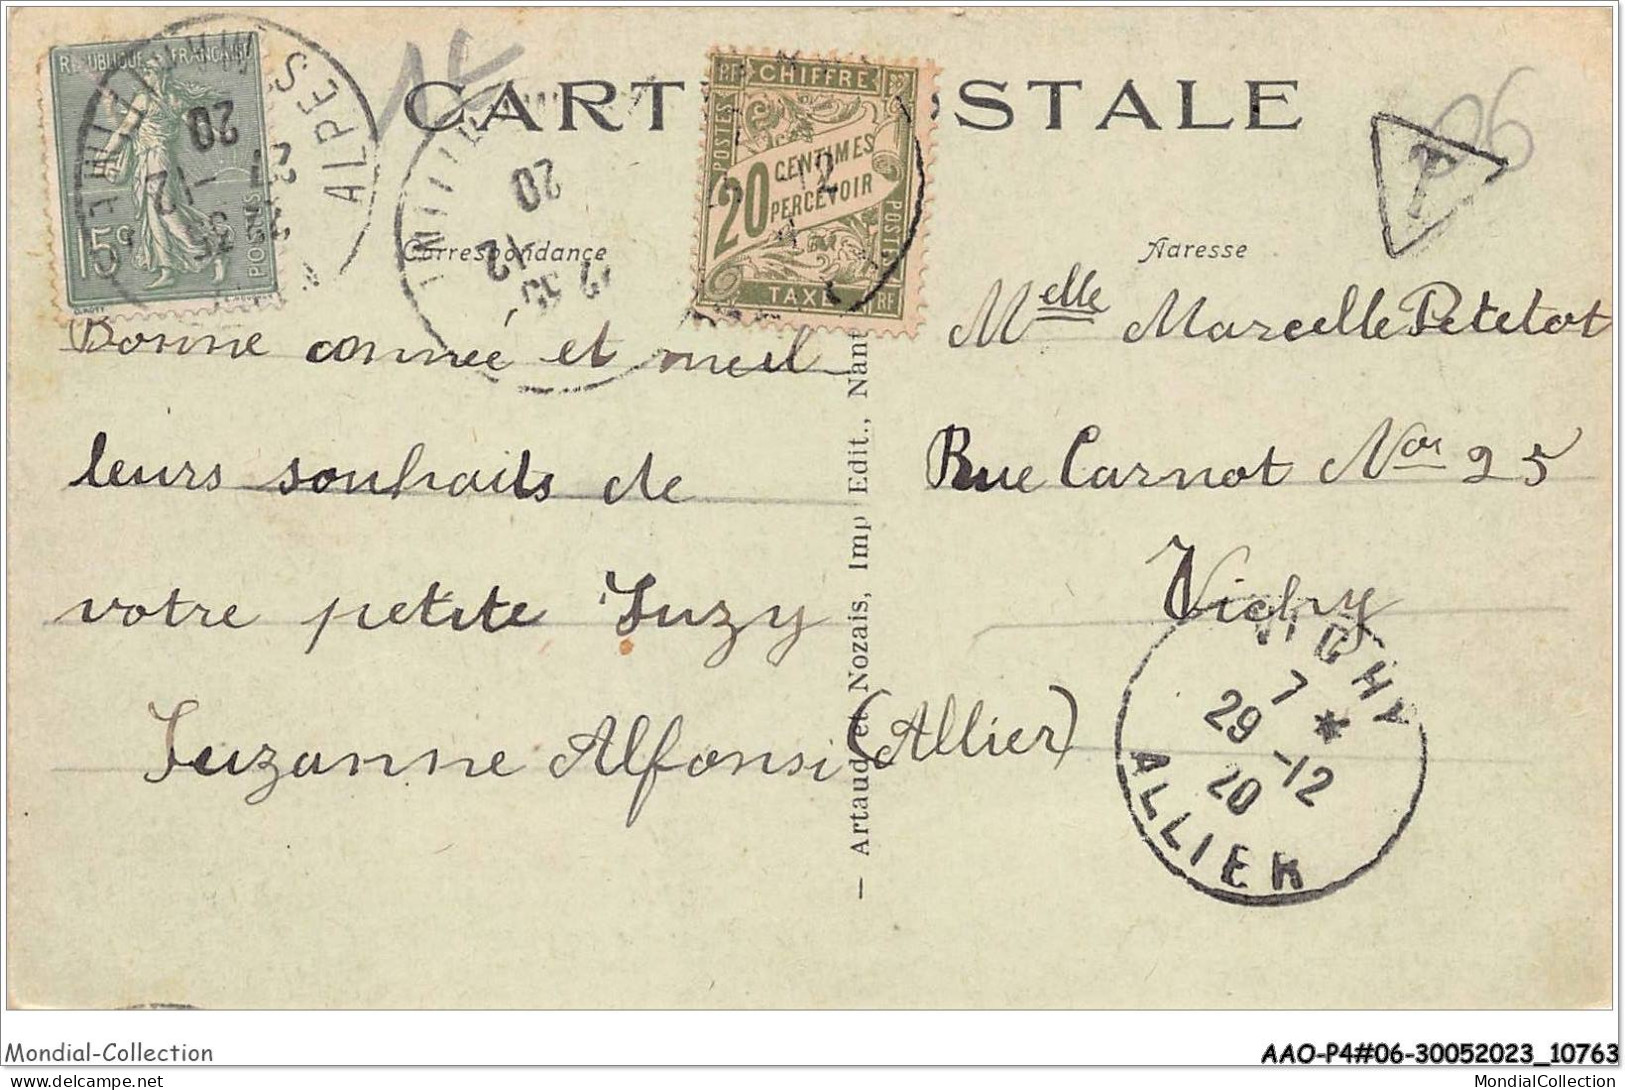 CARTE POSTALE
REPUBLIQUE FRANCAISE
15c
POSTES
ALPES MARITIMES
20
12
20
12
RF CHIFFRE
POSTES
20 CENTIMES
PERCEVOIR
POSTES
TAXE RF
T
06
Correspondance
Adresse
Bonne année et meil
leurs souhaits de
votre petite Suzy
Suzanne Alfonsi
Melle Marcelle Petetot
Rue Carnot Nor 25
Vichy
(Allier)
VICHY
7 *
29 -12
20
ALLIER
— Artaud et Nozais, Imp Edit., Nant
Mondial-Collection
AAO-P4#06-30052023_10763
delcampe.net
MondialCollection